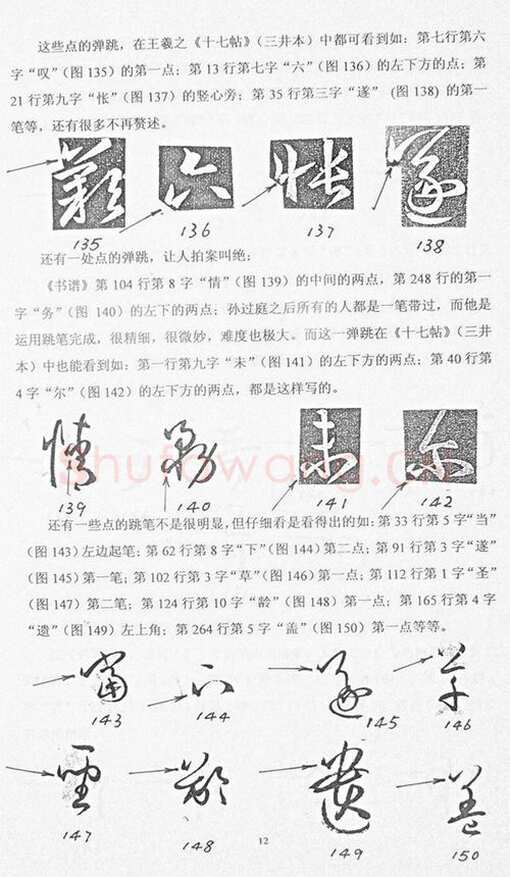 这些点的弹跳，在王羲之《十七帖》（三井本）中都可看到如：第七行第六
字“叹”（图 135）的第一点；第 13 行第七字“六”（图 136）的左下方的点；第
21 行第九字“怅”（图 137）的竖心旁；第 35 行第三字“遂”（图 138) 的第一
笔等，还有很多不再赘述。
135
136
137
138
还有一处点的弹跳，让人拍案叫绝：
《书谱》第 104 行第 8 字“情”（图 139）的中间的两点，第 248 行的第一
字“务”（图 140）的左下的两点；孙过庭之后所有的人都是一笔带过，而他是
运用跳笔完成，很精细，很微妙，难度也极大。而这一弹跳在《十七帖》（三井
本）中也能看到如：第一行第九字“未”（图 141）的左下方的两点；第 40 行第
4 字“尔”（图 142）的左下方的两点，都是这样写的。
139
140
141
142
还有一些点的跳笔不是很明显，但仔细看是看得出的如：第 33 行第 5 字“当”
（图 143）左边起笔；第 62 行第 8 字“下”（图 144）第二点；第 91 行第 3 字“遂”
（图 145）第一笔；第 102 行第 3 字“草”（图 146）第一点；第 112 行第 1 字“圣”
（图 147）第二笔；第 124 行第 10 字“龄”（图 148）第一点；第 165 行第 4 字
“遗”（图 149）左上角；第 264 行第 5 字“盖”（图 150）第一点等等。
143
144
145
146
147
148
149
150
12